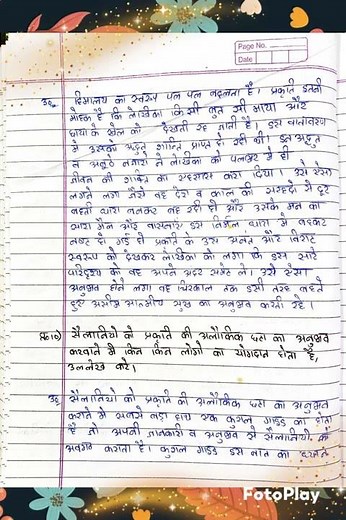 Page No.
Date
उ०- हिमालय का स्वरूप पल पल बदलता है। प्रकृति इतनी
मोहक है कि लेखिका किसी बुत सी माया और
छाया के खेल को देखती रह जाती है। इस वातावरण
में उसको अद्भुत शान्ति प्राप्त हो रही थी। इन अद्भुत
व अनूठे नजारों ने लेखिका को पलभर में ही
जीवन की शक्ति का एहसास करा दिया। उसे ऐसे
लगने लगा जैसे वह देश व काल की सरहदों से दूर
बहती धारा बनकर बह रही हो और उसके मन का
सारा मैल और वासनाएं इस निर्मल धारा में बहकर
नष्ट हो गई हो प्रकृति के उस अनंत और विराट
स्वरूप को देखकर लेखिका को लगा कि इस सारे
परिदृश्य को वह अपने अंदर समेट ले। उसे ऐसा
अनुभव होने लगा वह चिरकाल तक इसी तरह बहते
हुए असीम आत्मीय सुख का अनुभव करती रहे।
प्र०10) सैलानियों को प्रकृति की अलौकिक छटा का अनुभव
करवाने में किन किन लोगों का योगदान होता है,
उल्लेख करें।
उ० सैलानियों को प्रकृति की अलौकिक छटा का अनुभव
कराने में सबसे बड़ा हाथ एक कुशल गाइड का होता
है जो अपनी जानकारी व अनुभव से सैलानियों को
अवगत कराता है। कुशल गाइड इस बात का
FotoPlay